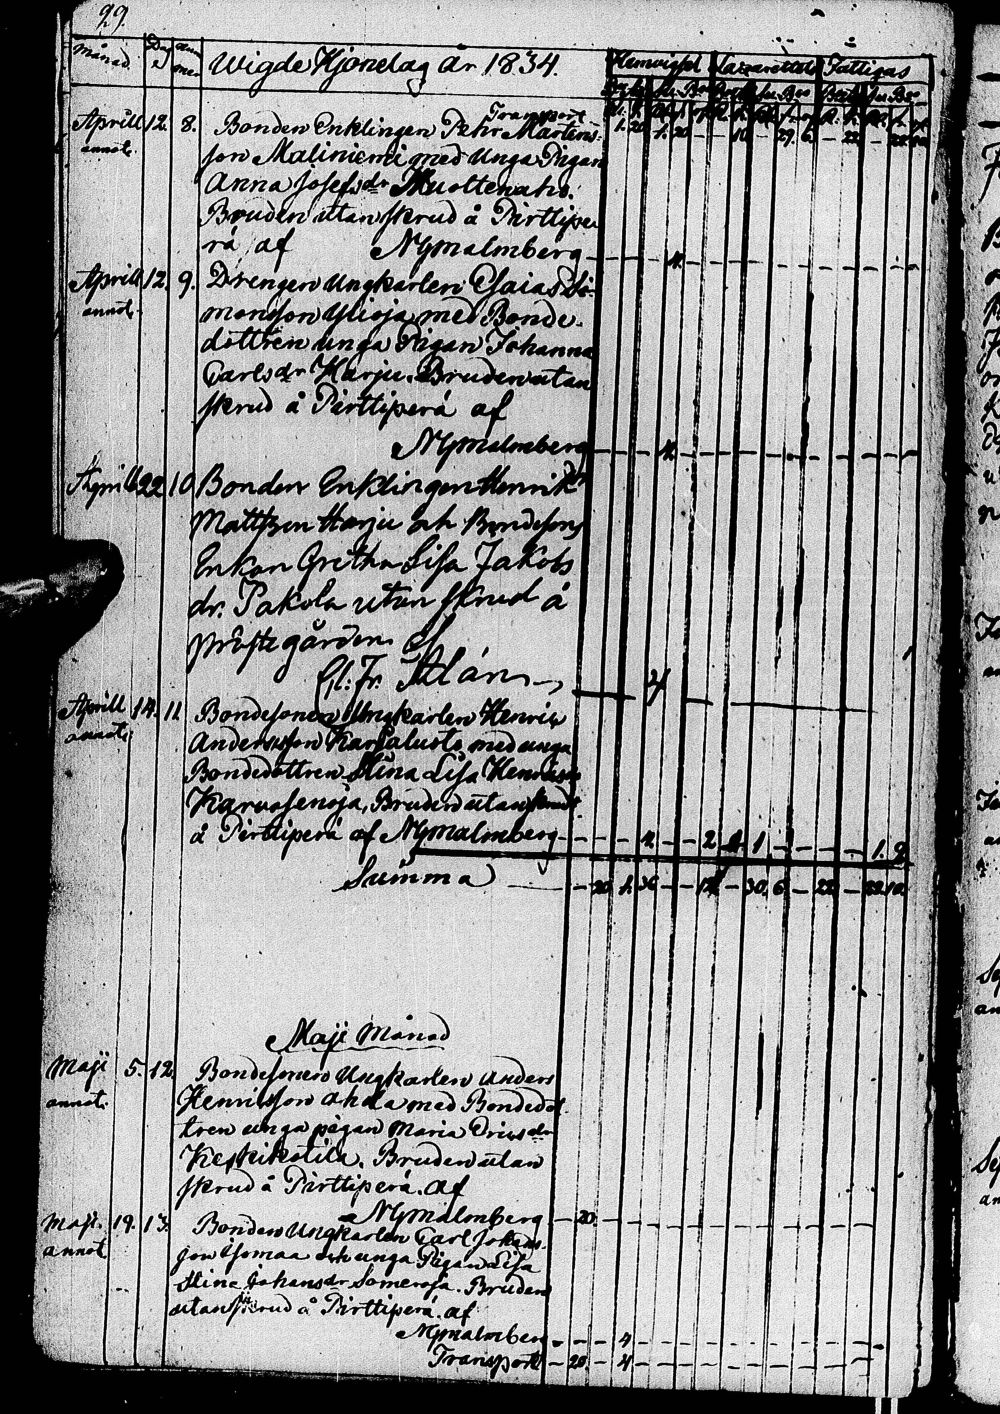 29.
Månad. Wigde Hjonelag År 1834. Hemvighl Lazarettets Fattigas
Transport
Aprill 12. 8. Bonden Enklingen Pehr Mårtens-
annot. son Maliniemi med Unga Pigan
Anna Josefs dr Muottenaho.
Bruden utan skrud å Pirttipe
rä af NGmalmberg
Aprill 12. 9. Drengen Ungkarlen Esaias Si-
annot. monsson Ylioja med Bonde-
dottren unga Pigan Johanna
Carls dr Harju. Bruden utan
skrud å Pirttiperä af
NGmalmberg 4.
Aprill 22 10 Bonden Enklingen Henrik
Mattsson Harju och Bondesons
Enkan Gretha Lisa Jakobs
dr. Pakola utan skrud å
prästegården af
Fr. Ståhn 4
Aprill 14. 11. Bondesonen Ungkarlen Henric
annot. Andersson Karjaluoto med unga
Bondedottren Stina Lisa Henrics
Karvosenoja, Bruden utan skrud
å Pirttiperä af NGmalmberg 4. 2 1 1. 9
Summa 20. 1. 36 30. 6. 22 22. 10.
Maji Månad
Maji 5. 12. Bondesonen Ungkarlen Anders
annot. Henricsson Ahola med Bondedot
tren unga pigan Maria Erics dr
Keskikotila. Bruden utan
skrud å Pirttiperä. af
NGmalmberg 20.
Maji. 19. 13. Bonden Ungkarlen Carl Johans-
annot son Isomaa och unga Pigan Lisa
Stina Johans dr Someroja. Bruden
utan skrud å Pirttiperä. af
NGmalmberg 4.
Transport 20. 4